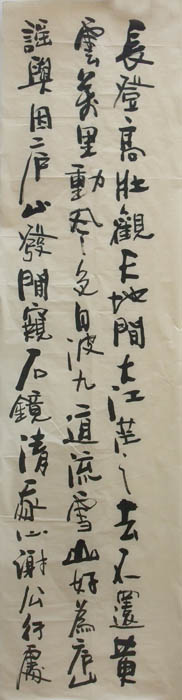 長登高壯觀天地間大江茫〻去不還黄
雲萬里動風〻色白波九道流雪山好為庐山
謡興因庐山發閒窺石鏡清我心謝公行處